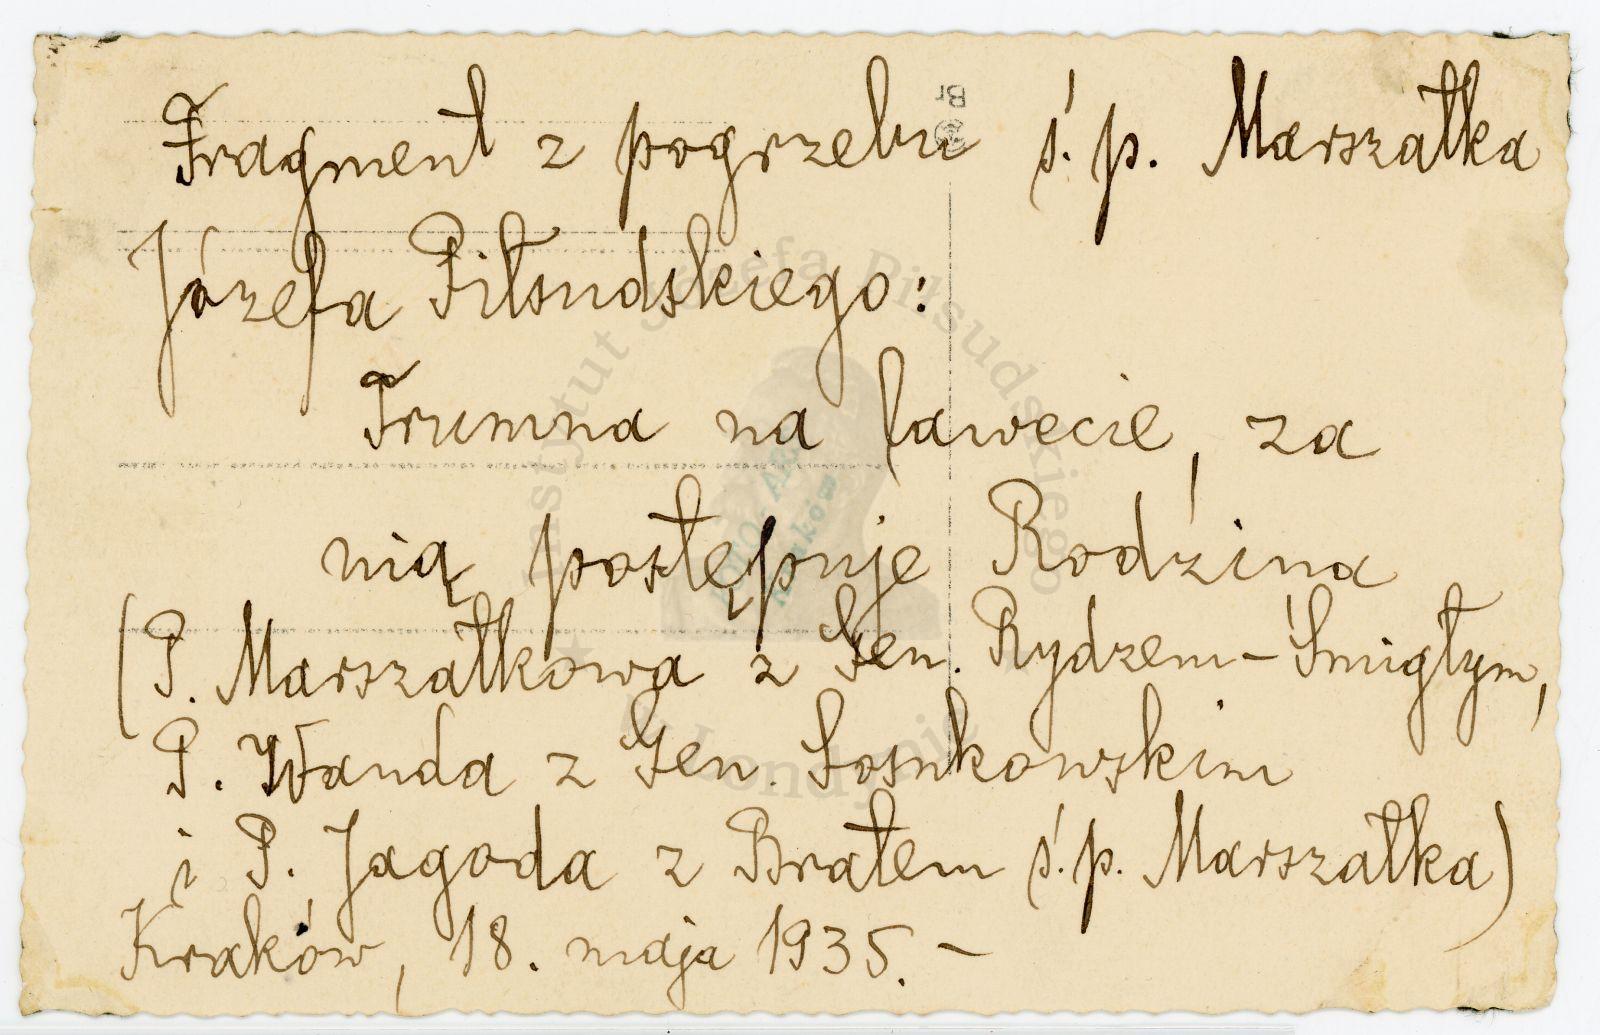 Fragment z pogrzebu ś.p. Marszałka
Józefa Piłsudskiego:
Trumna na lawecie, za
nią postępuje Rodzina
(P. Marszałkowa z Gen. Rydzem-Śmigłym,
P. Wanda z Gen. Sosnkowskim
i P. Jagoda z Bratem ś.p. Marszałka)
Kraków, 18. maja 1935. –
Instytut Józefa Piłsudskiego
w Londynie
Br
FOTO-ART
Kraków